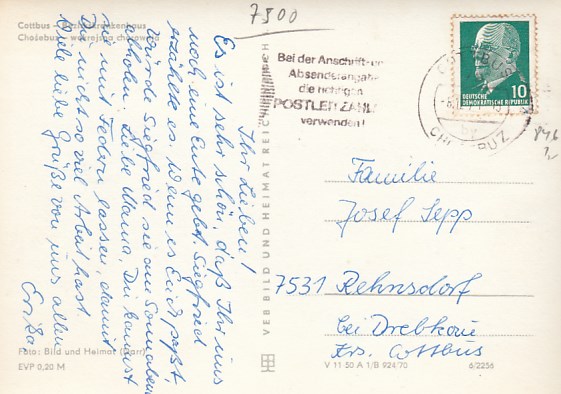 Cottbus – Bezirkskrankenhaus
Chośebuz – wokrejsna chórownja
7500
Ihr Lieben!
Es ist sehr schön, daß Ihr uns
noch eine Ente gebt. Siegfried
erzählte es. Wenn es Euch paßt,
würde Siegfried sie am Sonnabend
abholen. Liebe Mama, Du kannst
sie mit Federn lassen, damit
Du nicht so viel Arbeit hast.
Viele liebe Grüße von uns allen
Erika
Foto: Bild und Heimat (Darr)
EVP 0,20 M
VEB BILD UND HEIMAT REICH
Bei der Anschrift
Absenderangabe
die richtigen
POSTLEITZAHL
verwenden!
COTTBUS
CHOŚEBUZ
10
DEUTSCHE
DEMOKRATISCHE REPUBLIK
Familie
Josef Sepp
7531 Rehnsdorf
bei Drebkau
Krs. Cottbus
V 11 50 A 1/B 924/70
6/2256